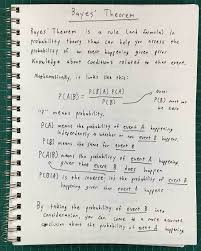 Bayes' Theorem
Bayes Theorem is a rule (and formula) in
probability theory that can help you assess the
probability of an event happening given prior
knowledge about conditions related to that event.
Mathematically, it looks like this:
P(A|B) = P(B|A) P(A)
P(B)
"P" means probability.
P(A) means the probability of event A happening
independently of whether or not event B happens.
P(B) means the same for event B
P(A|B) means the probability of event A
happening given that event B happens
P(B|A) is the inverse; it's the probability of event B
happening given that event A happens
By taking the probability of event B into
consideration, you can come to a more accurate
conclusion about the probability of event A happening.